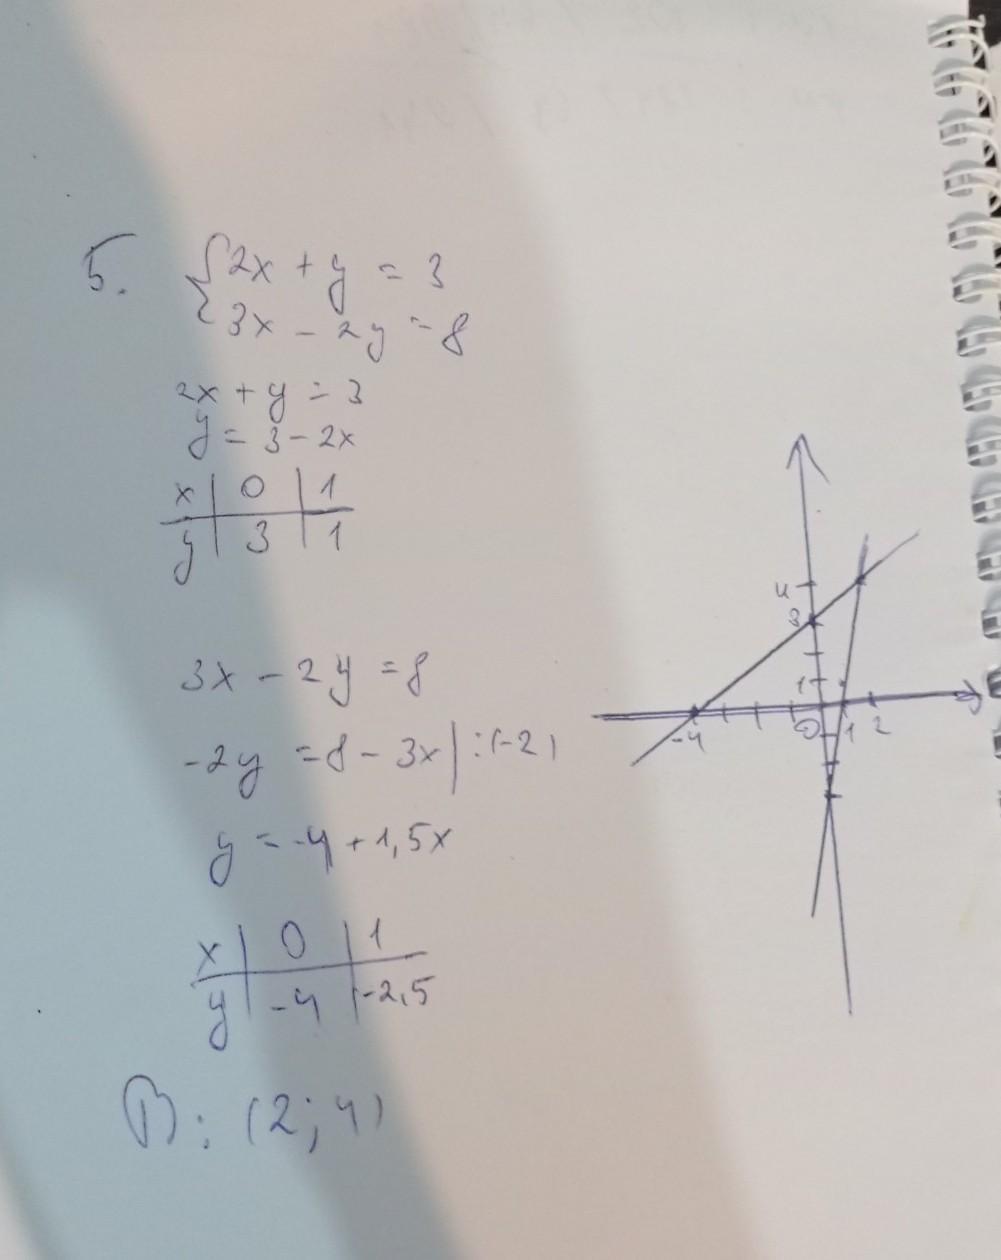 5. {2x + y = 3
3x - 2y = 8
2x + y = 3
y = 3 - 2x
x | 0 | 1
y | 3 | 1
3x - 2y = 8
-2y = 8 - 3x | : (-2)
y = -4 + 1,5x
x | 0 | 1
y | -4 | -2,5
В: (2; 4)
4
3
1
-4 0 1 2